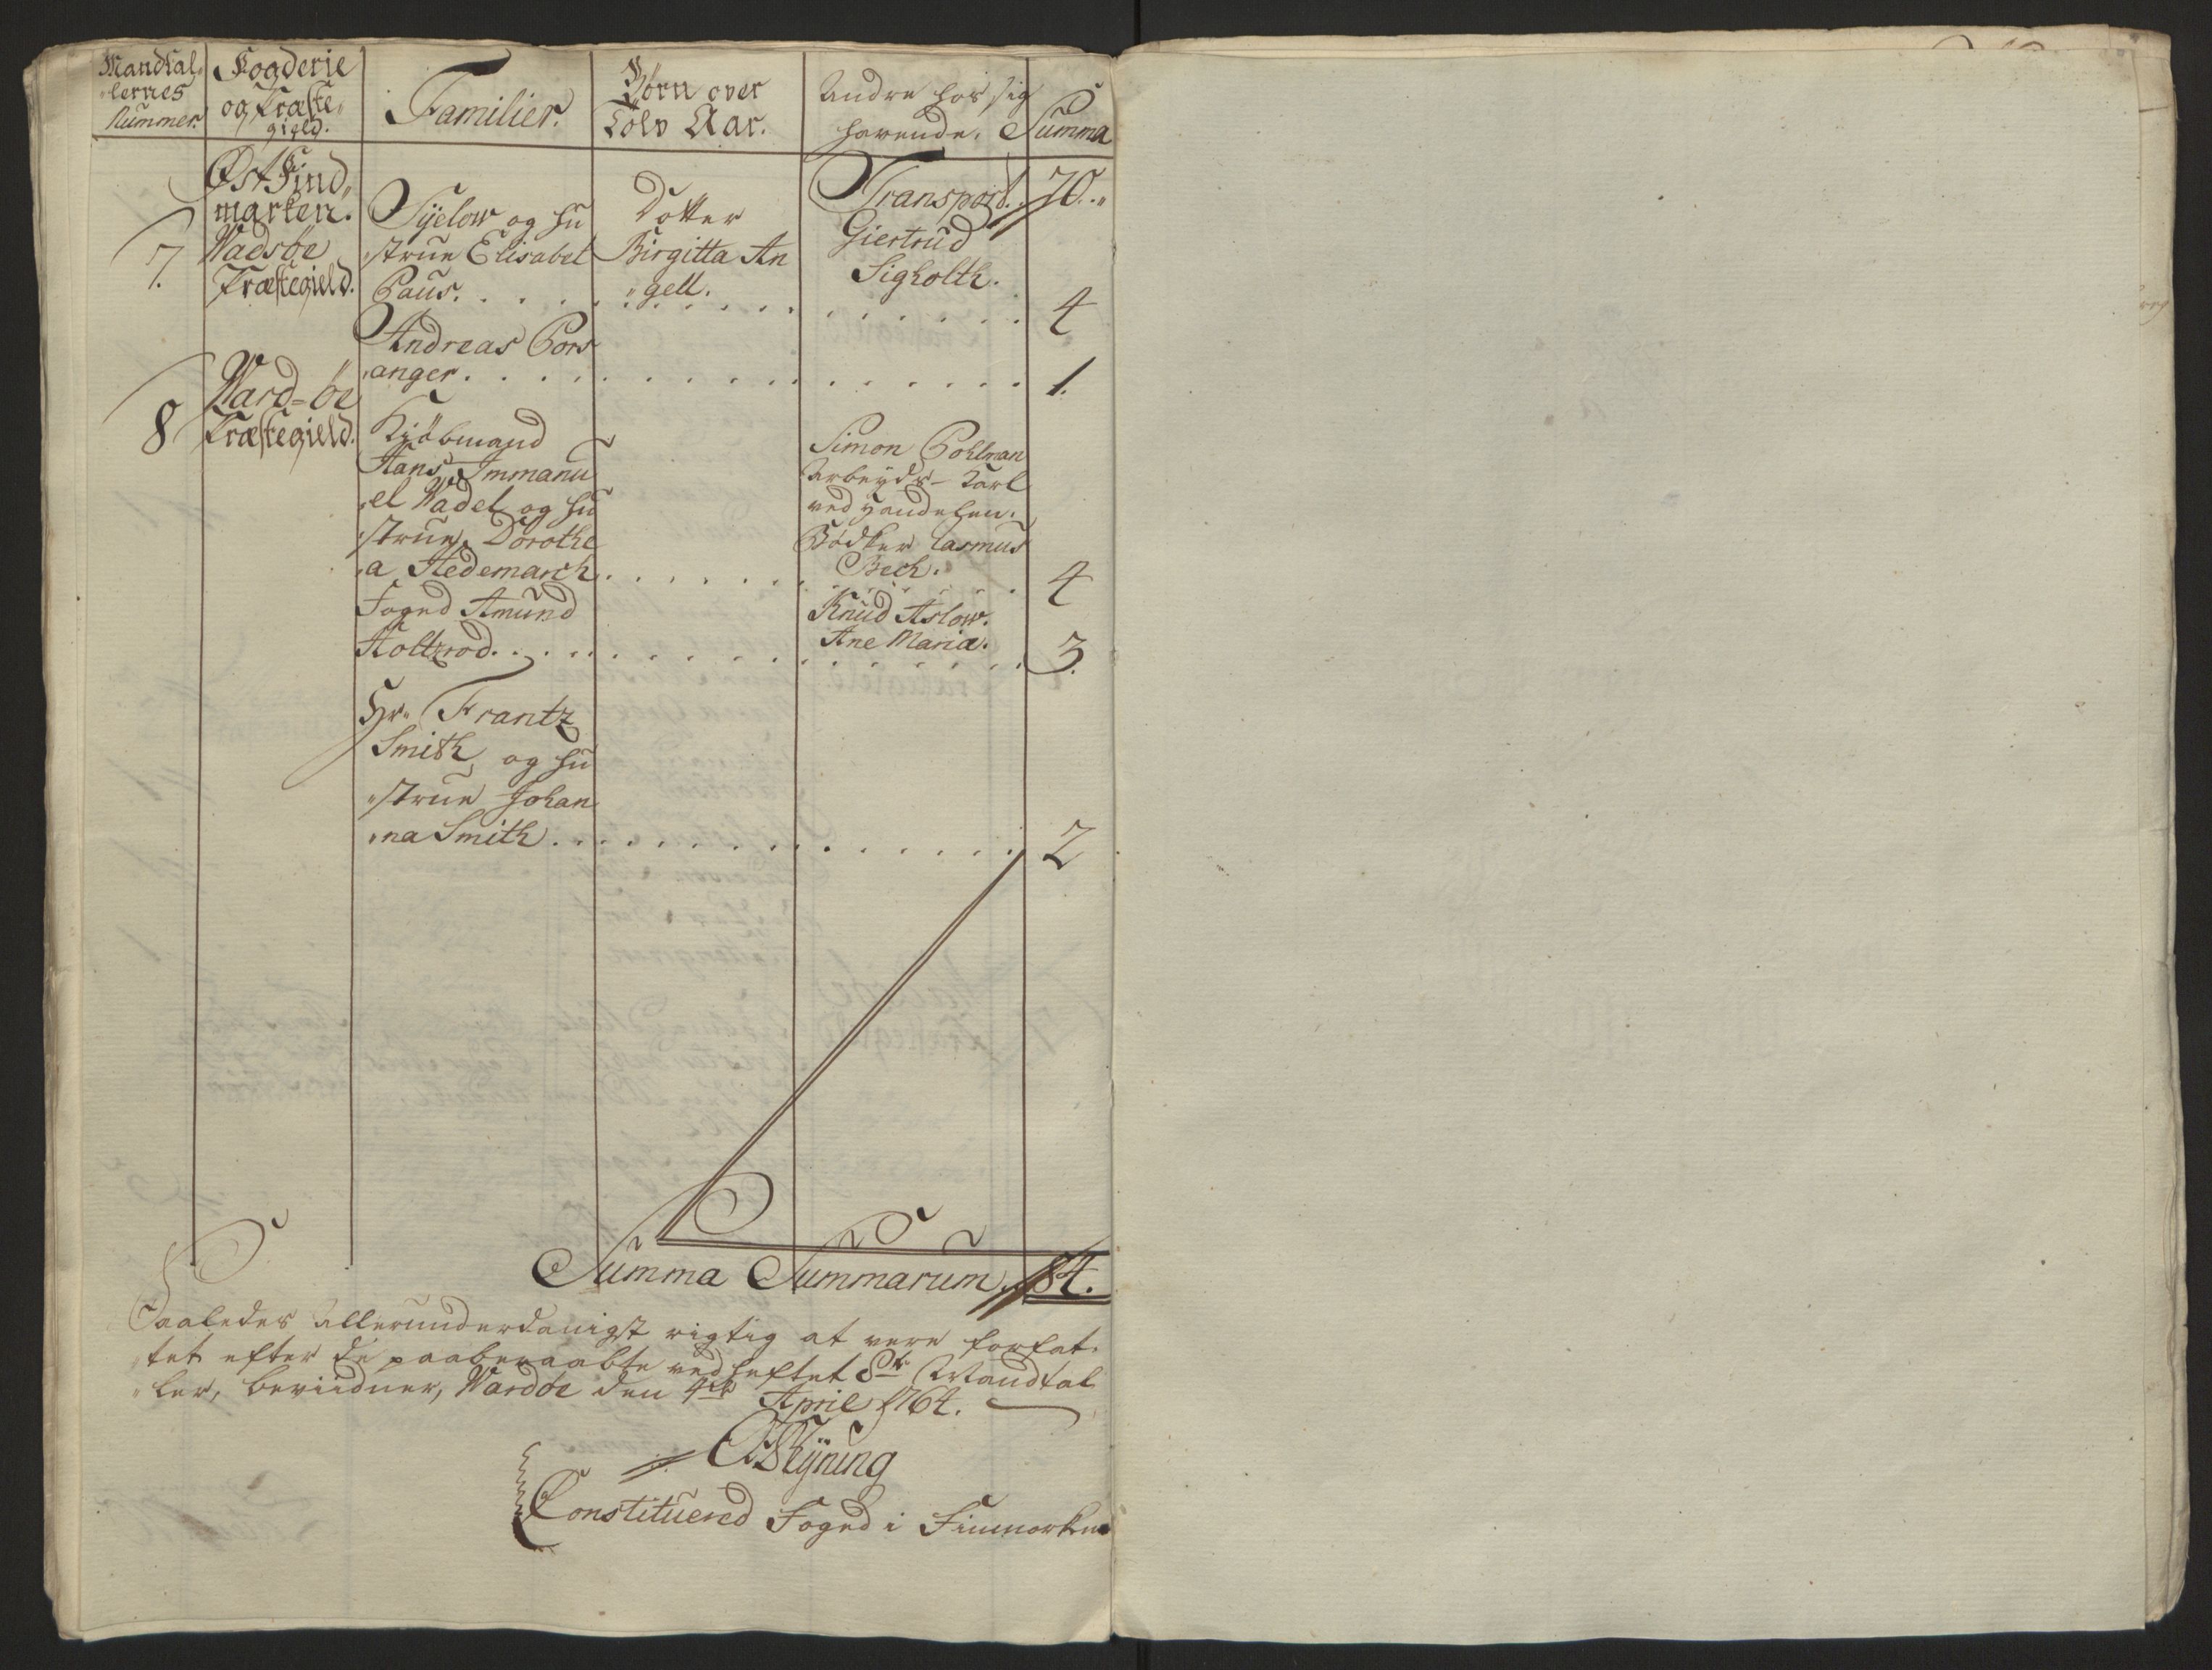 Mandtal„
„lernes
Nummer.
Fogderie
og Præste„
gield.
Familier.
Børn over
Tolv Aar.
Andre hos sig
havende.
Summa
Transport. 70.„
Øst Find„
marken.
7. Vadsöe
Præstegield.
Sÿelow og hu
„strue Elisabet
Paus. . . . .
Dotter
Birgitta An
„gell.
Giertrud
Sigholth.
4
Andreas Pors
„anger. . . . . 1.
8 Ward-öe
Præstegield.
Kiöbmand
Hans Immanu
„el Wadel og hu
„strue, Dorothe
„a Hedemarch. . . . .
Simon Pohlman
Arbeyds-Karl
ved Handelen.
Bödker Rasmus
Bech.
4
Foged Amund
Holtzrod. . . . .
Knud Aslow.
Ane Maria.
3.
Hr. Frantz
Smith, og hu
„strue Johan
„na Smith. . . . . 2
Summa Summarum. 84.
Saaledes allerunderdanigst rigtig at vere forfat„
„tet efter de paaberaabte ved heftet 8te Mandtal
„ler, bevidner, Wardöe den 4de April 1764.
Constituered Foged i Finmorken